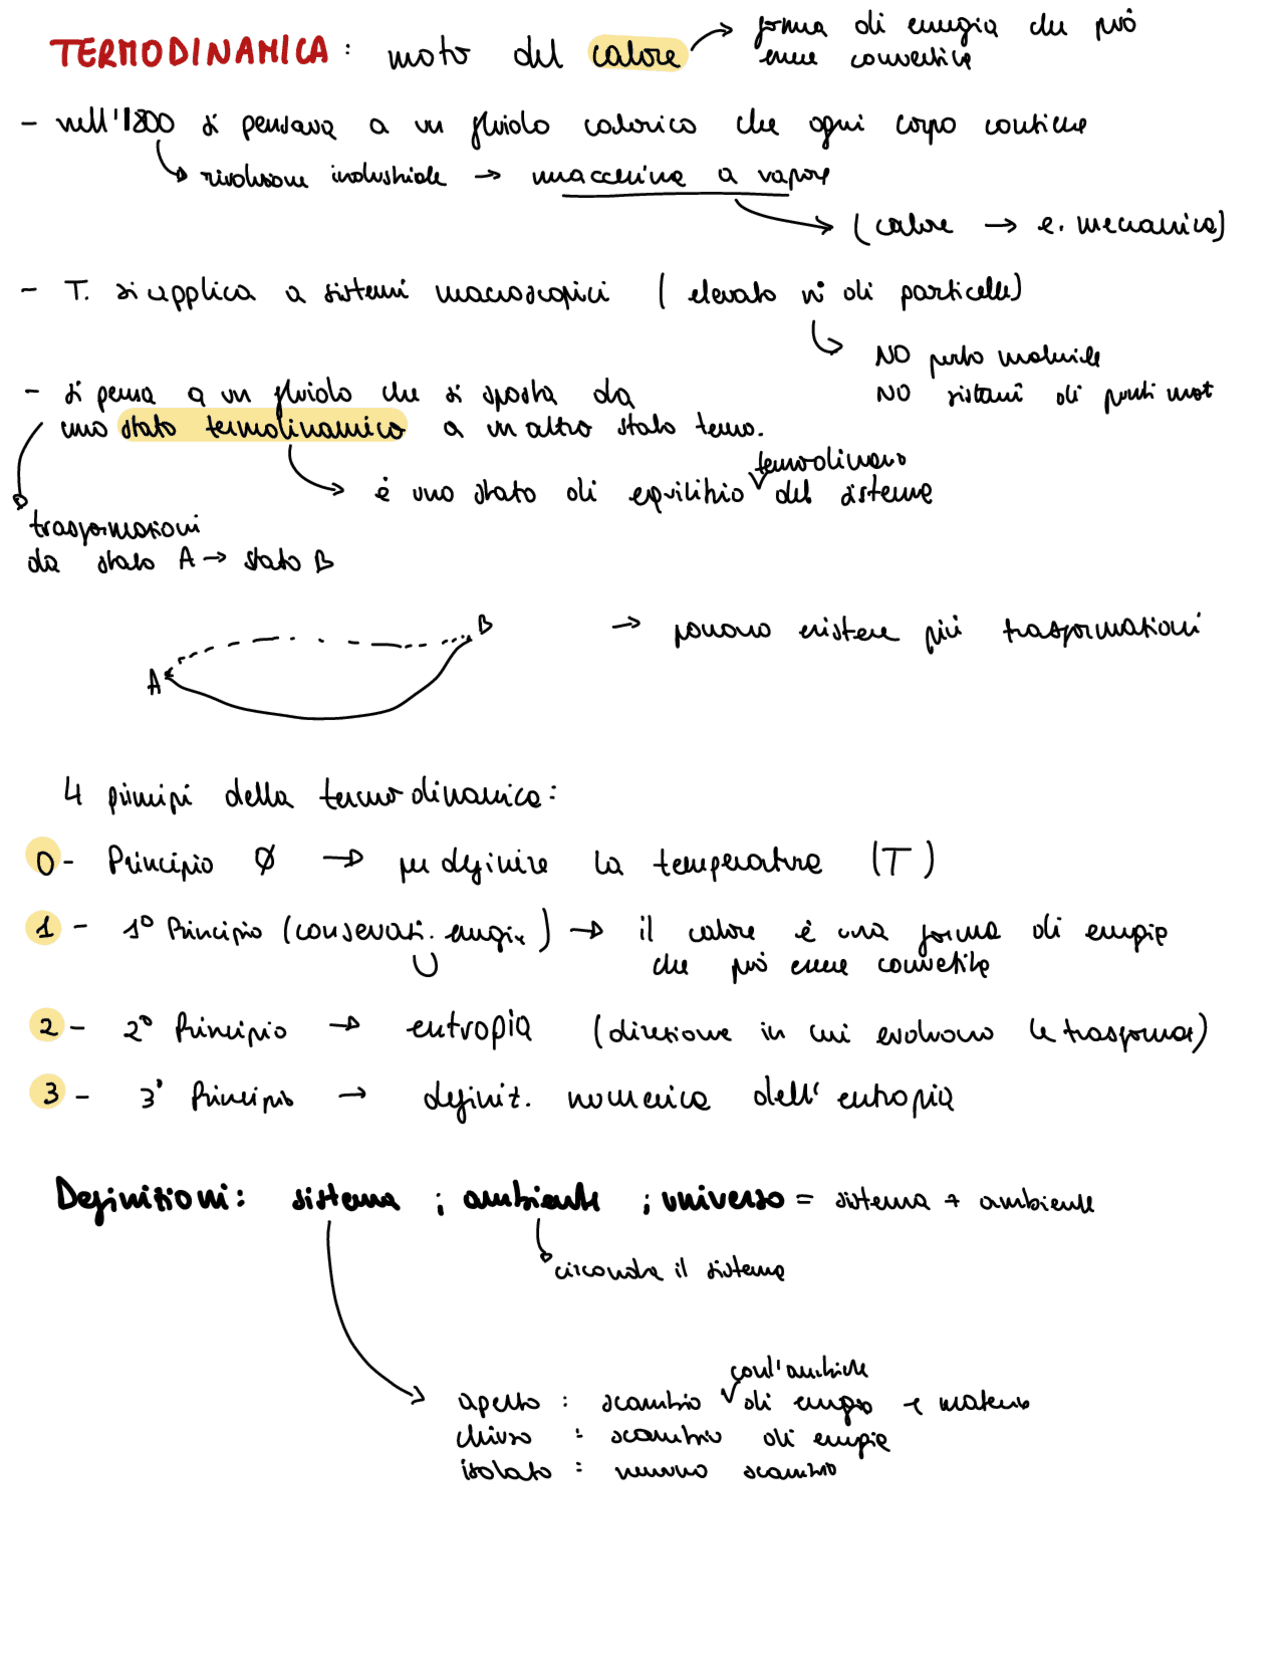 TERMODINAMICA: moto del calore → forma di energia che può
essere convertita
- nell'1800 si pensava a un fluido calorico che ogni corpo contiene
→ rivoluzione industriale → macchina a vapore
→ (calore → e. meccanica)
- T. si applica a sistemi macroscopici (elevato n° di particelle)
→ NO punto materiale
NO sistemi di punti mat
- si pensa a un fluido che si sposta da
uno stato termodinamico a un altro stato termo.
→ è uno stato di equilibrio termodinamo del sistema
trasformazioni
da stato A → stato B
A B → possono esistere più trasformazioni
4 principi della termodinamica:
0- Principio Ø → per definire la temperatura (T)
1- 1° Principio (conservaz. energia) → il calore è una forma di energia
che può essere convertita
2- 2° Principio → entropia (direzione in cui evolvono le trasformaz)
3- 3° Principio → definiz. numerica dell'entropia
Definizioni: sistema ; ambiente ; universo = sistema + ambiente
circonda il sistema
→ aperto : scambio con l'ambiente di energia e materia
chiuso : scambio di energia
isolato : nessuno scambio